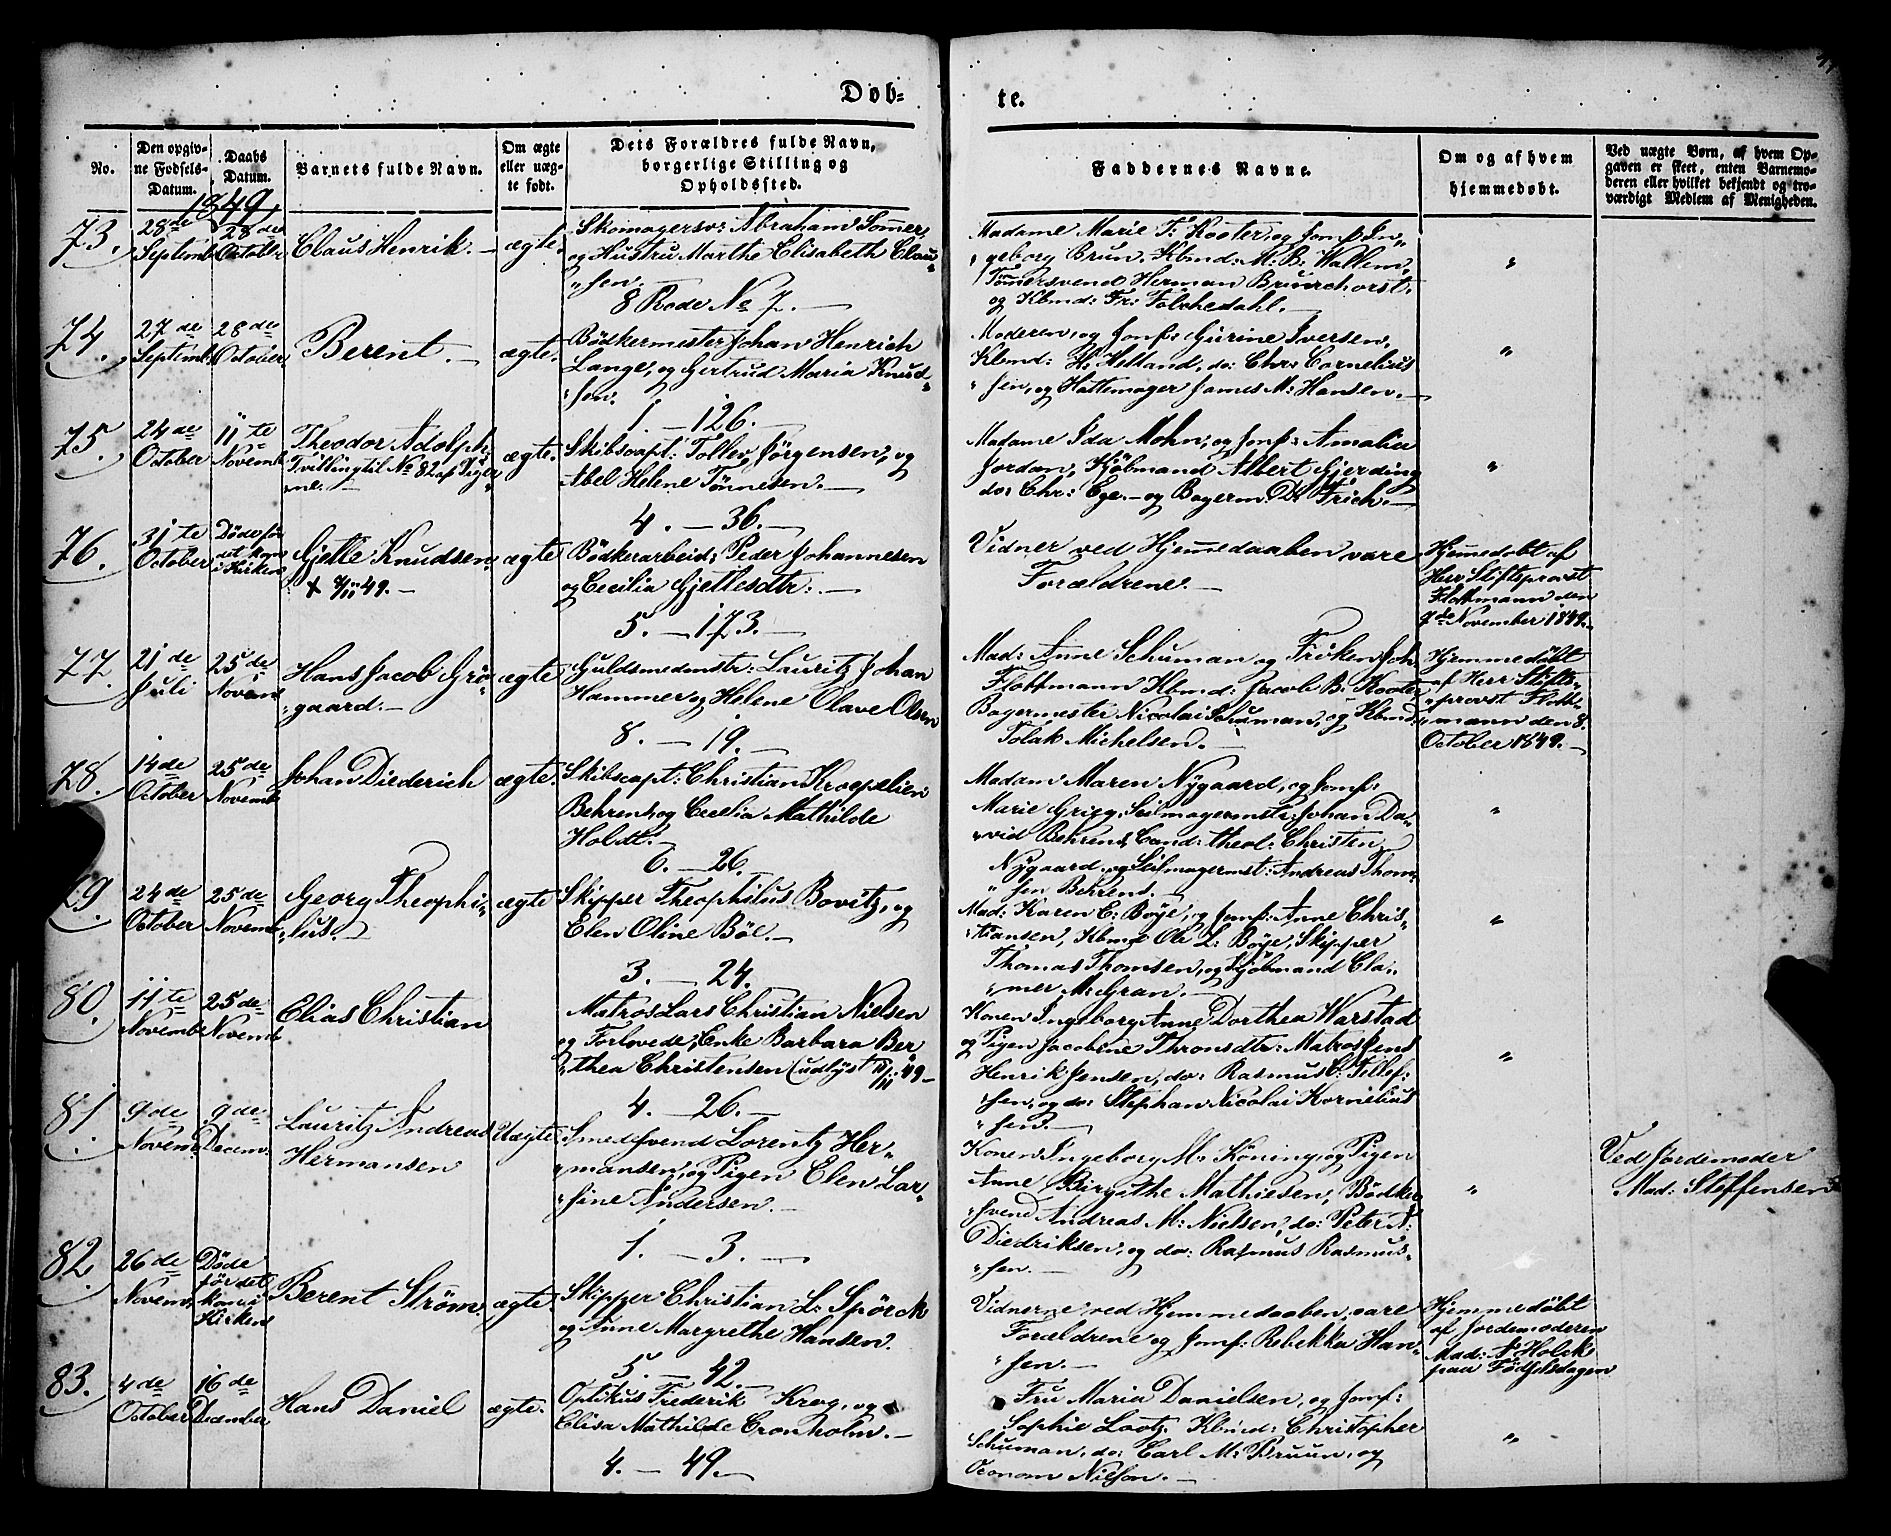 Døb-
te.
No.
Den opgiv-
ne Fødsels-
Datum.
Daabs
Datum.
Barnets fulde Navn.
Om ægte
eller uæg-
te født.
Dets Forældres fulde Navn,
borgerlige Stilling og
Opholdssted.
Faddernes Navne.
Om og af hvem
hjemmedøbt.
Ved uægte Børn, af hvem Op-
gaven er skeet, enten Barnemo-
deren eller hvilket bekjendt og tro-
værdigt Medlem af Menigheden.
1849.
73.
28de
Septemb
28de
October
Claus Henrik.
ægte.
Skomagersv: Abraham Sommer,
og Hustru Marthe Elisabeth Clau-
"sen.
8 Rode No 7.
Madame Marie F. Koster, og Jomf: In,,
"geborg Brun, Kbmd: M: B: Wallem,
Tømersvend Herman Brunchorst,
og Kbmd: Fr:
"
74.
27de
Septemb.
28de
October
Berent.
ægte.
Bødkermester Johan Henrich
Lange, og Gertrud Maria Knud-
"sen.
1. — 126.
Moderen, og Jomf: Gurine Iversen,
Kbmd: H: Helland, do: Chr: Cornelius
"sen, og Hattemager James M: Hansen.
"
75.
24de
October
11te
Novemb
Theodor Adolph,
Tvilling til No 82 af Piger
"ne.
ægte.
Skibscapt: Tollev Jørgensen, og
Abel Helene Tønnesen.
4. — 36.
Madame Ida Mohn, og Jomf: Amalia
Jordan, Kjøbmand Albert Gjerding
do: Chr: Ege. og Bagerm. D: Frich.
"
76.
31te
October
Døde fø
det kom
i Kirken
Gjelle Knudsen
+ 8/11 49.
ægte
Bødkerarbeid: Peder Johannesen
og Cecilia Gjellesdtr:
5. — 173.
Vidner ved Hjemmedaaben vare
Forældrene.
Hjemmedøbt af
Herr Stiftsprovst
Flottmann den
7de November 1849.
77.
21de
Juli
25de
Novem
Hans Jacob Grø-
"gaard.
ægte
Guldsmedmstr: Lauritz Johan
Hammer og Helene Olave Olsen
8. — 19.
Mad: Anne Schuman og Frøken Joh.
Flottmann Kbmd: Jacob B: Koster
Bagermester Nicolai Schuman, og Kbmd.
Tolak Michelsen.
Hjemmedøbt
af Herr Stifts,,
"provst Flott-
mann den 8.
October 1849.
78.
14de
October
25de
Novemb
Johan Diederich
ægte.
Skibscapt: Christian Kroepelien
Behrens, og Cecelia Mathilde
Holdt.
6. — 26.
Madam Maren Nygaard, og Jomf:
Marie Grieg, Seilmagermstr: Johan Da-
"vid Behrens, Cand: theol: Christen
Nygaard, og Seilmagermst: Andreas Thom-
"sen Behrens.
"
79
24de
October
25de
Novemb
Georg Theophi-
"lus.
ægte
Skipper Theophilus Bovitz, og
Elen Oline Böe.
3. — 24.
Mad: Karen C: Bøye, og Jomf: Anne Chris-
"tiansen, Kbmd Ole L: Bøye, Skipper
Thomas Thomsen, og Kjøbmand Cla-
"mer M: Gran.
"
80.
11te
Novemb
25de
Novemb
Elias Christian
Matros Lars Christian Nielsen
og Forlovede, Enke Barbara Ber
"thea Christensen (udlyst 49
4. — 26.
Konen Ingeborg Anne Dorthea Warstad
og Pigen Jacobine Thronsdtr: Matros Jens
Henrik Jensen, do: Rasmus C: Tellef-
"sen, og do: Stephan Nicolai Kornelius
"sen.
"
81
9de
Novem.
9de
Decem.
Lauritz Andreas
Hermansen
Uægte
Smedsvend Lorentz Her-
"mansen, og Pigen Elen Lar-
"sine Andersen.
1. — 3.
Konen Ingeborg M: Köning, og Pigen
Anne Birgithe Mathiesen, Bødker
"svend Andreas M: Nielsen, do: Peter A:
Diedriksen, og do: Rasmus Rasmus-
"sen.
"
Ved Jordemoder
Mad: Steffensen
82
26de
Novem.
Døde
før det
kom i
Kirken
Berent Strøm,
ægte.
Skipper Christian L: Spörck
og Anne Margrethe Hansen.
5. — 42.
Vidnerne ved Hjemmedaaben, vare
Forældrene og Jomf: Rebekka Han-
"sen.
Hjemmedøbt
af Jordemoderen
Mad: N Holck
paa Fødselsdagen
83.
4de
October
16de
December
Hans Daniel
ægte.
Optikus Frederik Krog, og
Elisa Mathilde Cronholm.
4. — 49.
Fru Maria Danielsen, og Jomf:
Sophie Lootz, Kbmd: Christopher
Schuman, do: Carl M: Bruun, og
Oeonom Nilson.
"